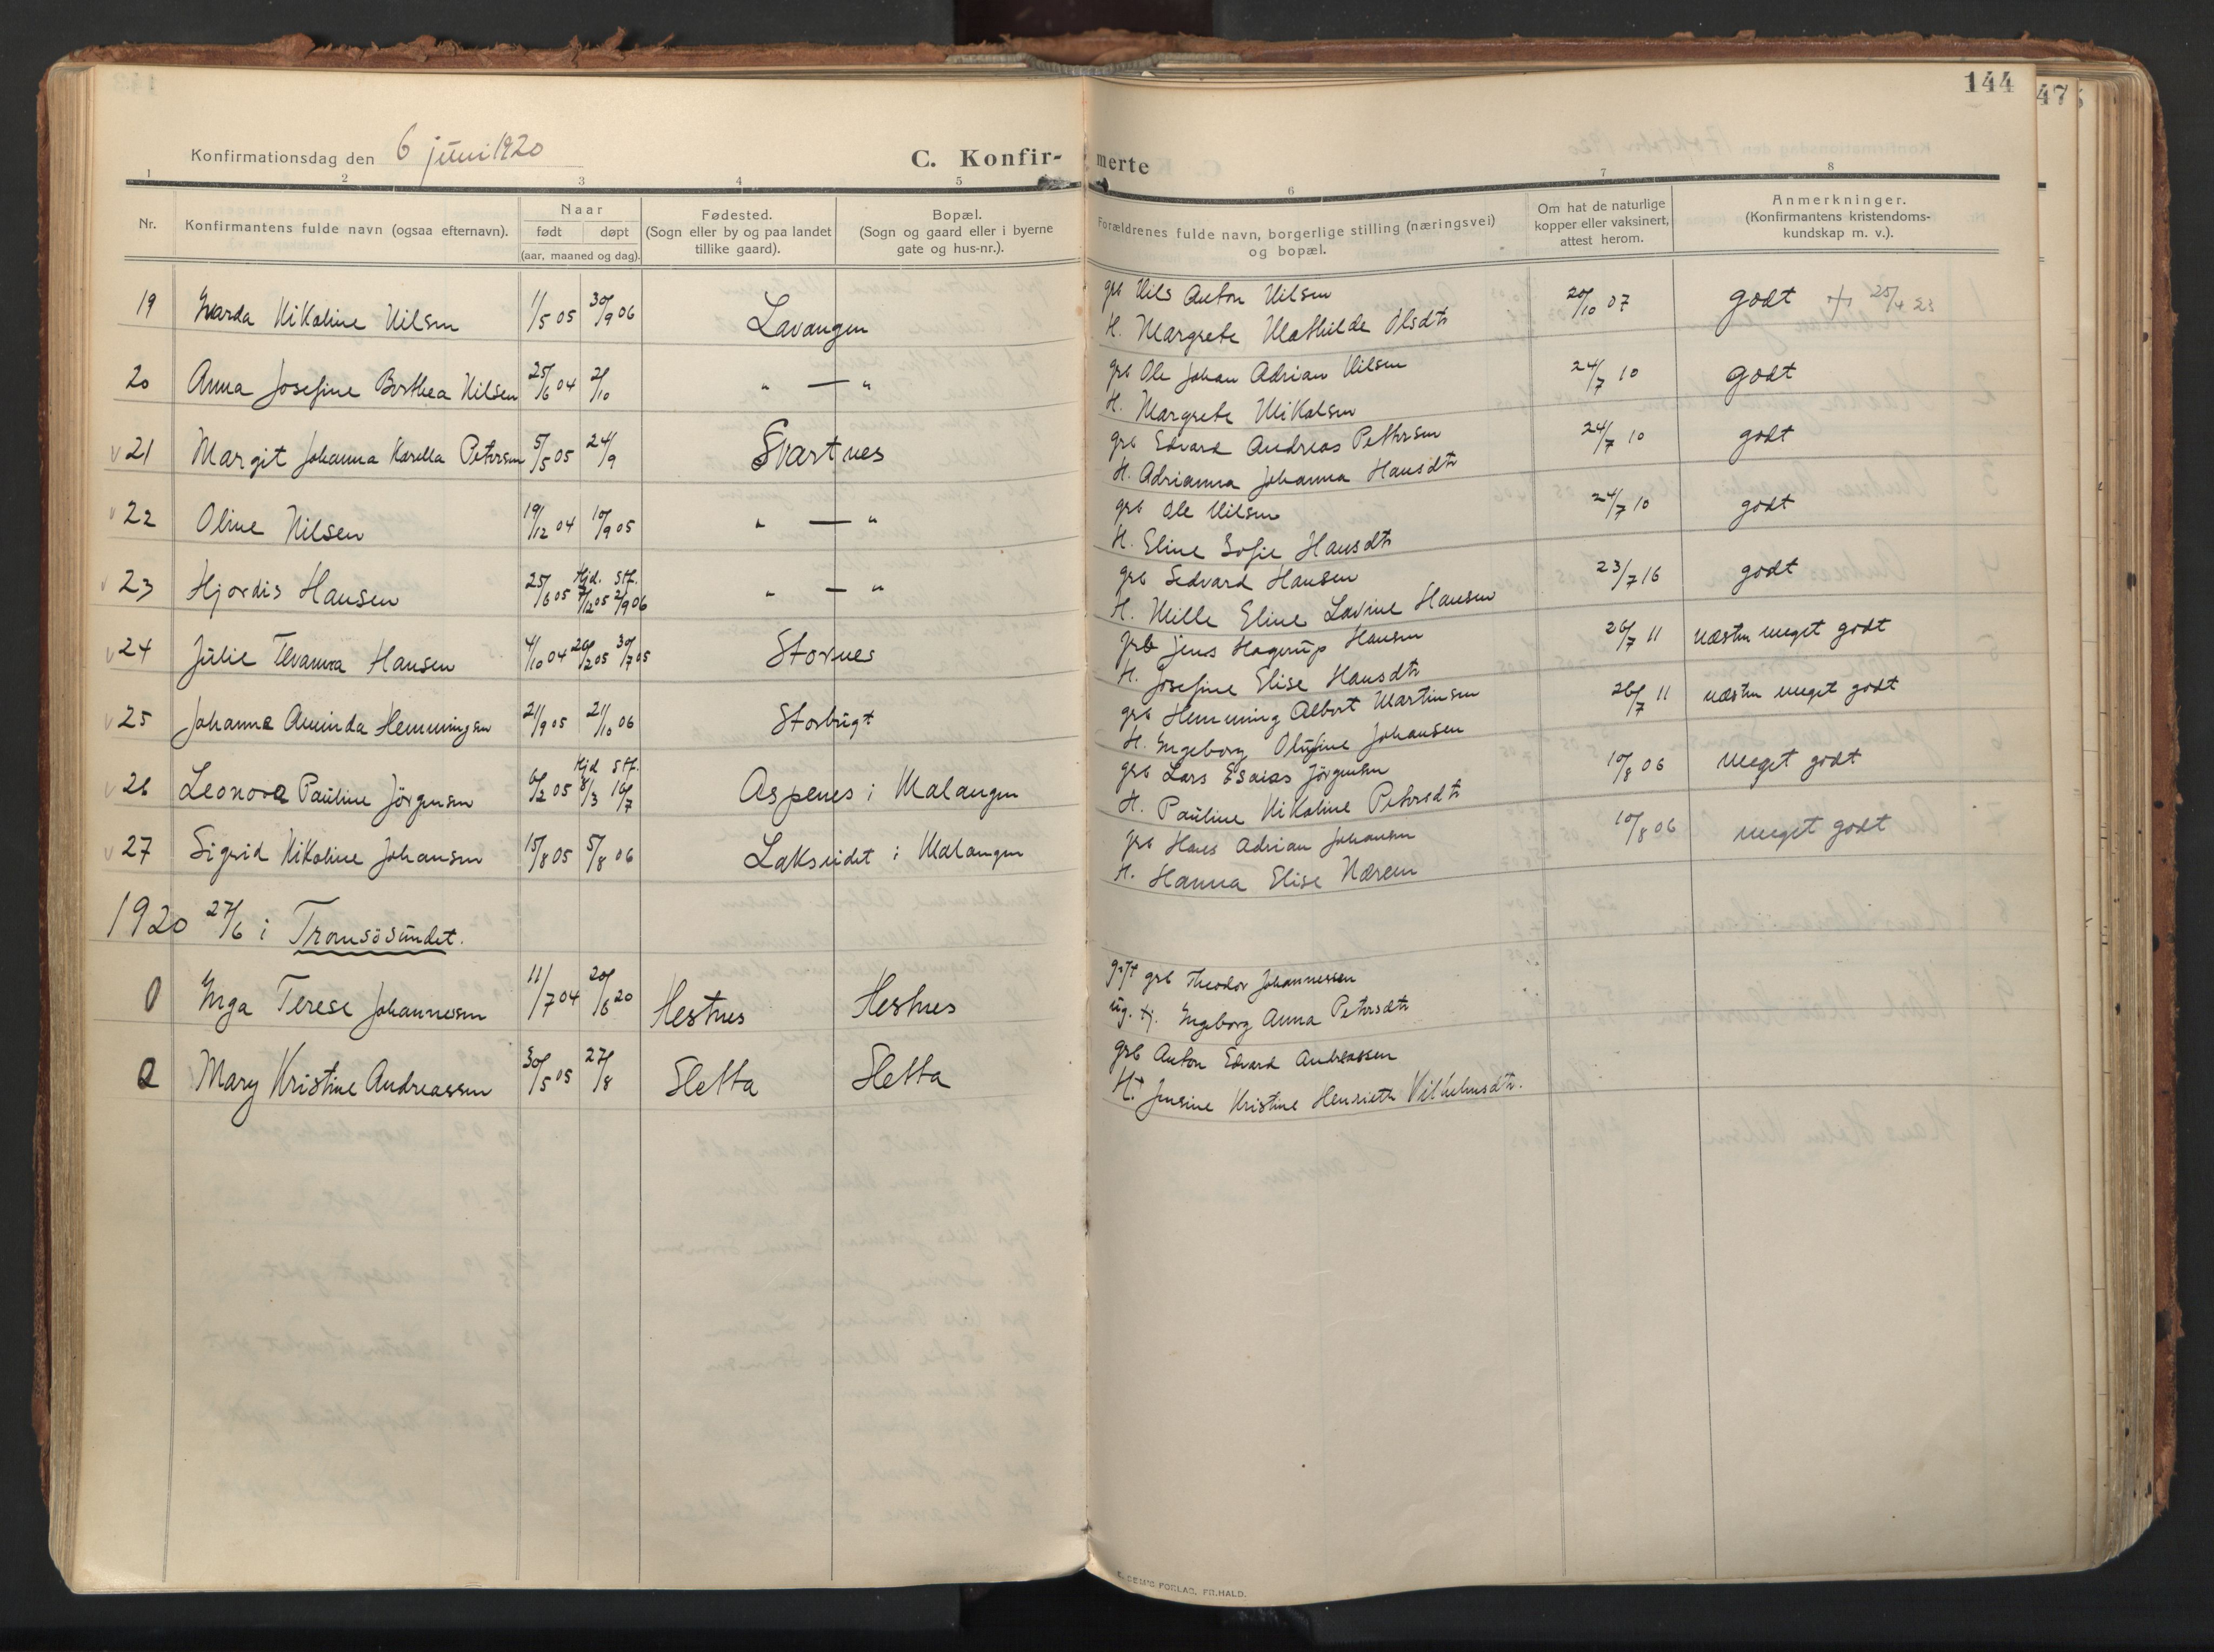 144
47
Konfirmationsdag den 6 juni 1920
C. Konfir- merte
1 2 3 4 5 6 7 8
Nr.
Konfirmantens fulde navn (ogsaa efternavn).
Naar
født døpt
(aar, maaned og dag).
Fødested.
(Sogn eller by og paa landet
tillike gaard).
Bopæl.
(Sogn og gaard eller i byerne
gate og hus-nr.).
Forældrenes fulde navn, borgerlige stilling (næringsvei)
og bopæl.
Om hat de naturlige
kopper eller vaksinert,
attest herom.
Anmerkninger.
(Konfirmantens kristendoms-
kundskap m. v.).
19 Nikoline Nilsen 1/5 05 30/9 06 Lavangen
grb Nils Anton Nilsen 20/10 07 godt 25/4 23
H. Margrete Mathilde Olsdtr
20 Anna Josefine Berthea Nilsen 25/6 04 2/10 " — "
grb Ole Johan Adrian Nilsen 24/7 10 godt
H. Margrete Mikalsen
v 21 Margit Johanna Karella Petersen 5/5 05 24/9 Svartnes
grb Edvard Andreas Pettersen 24/7 10 godt
H. Adrianna Johanna Hansdtr
v 22 Oline Nilsen 19/12 04 10/9 05 " — "
grb Ole Nilsen 24/7 10 godt
H. Eline Sofie Hansdtr
v 23 Hjordis Hansen 25/6 05 Hjd. 7/12 05 Stf. 2/9 06 " — "
grb Sedvard Hansen 23/7 16 godt
H. Mille Eline Lavine Hansen
v 24 Julie Hansen 4/10 04 20/2 05 30/7 05 Stornes
grb Jens Hagerup Hansen 26/7 11 næsten meget godt
H. Josefine Elise Hansdtr
v 25 Johanna Aminda Hemmingsen 21/9 05 21/10 06 Storbugt
grb Hemming Albert Martinsen 26/7 11 næsten meget godt
H. Ingeborg Olufine Johansen
v 26 Leonora Pauline Jörgensen 6/2 05 Hjd 8/3 Stf. 16/7 Aspenes i Malangen
grb Lars Esaias Jörgensen 10/8 06 meget godt
H. Pauline Nikoline Petersdtr
v 27 Sigrid Nikoline Johansen 15/8 05 5/8 06 Lakseidet i Malangen
grb Hans Adrian Johansen 10/8 06 meget godt
H. Hanna Elise Næren
1920 27/6 i Tromsösundet.
Inga Terese Johannessen 11/7 04 20/6 20 Hestnes Hestnes
gift grb Theodor Johannessen
ug. Ingeborg Anna Petersdtr
2 Mary Kristine Andreassen 30/5 05 27/8 Sletta Sletta
grb Anton Edvard Andreassen
H. Jensine Kristine Henriette Vilhelmsdtr.
FORLAG, FR.HALD.